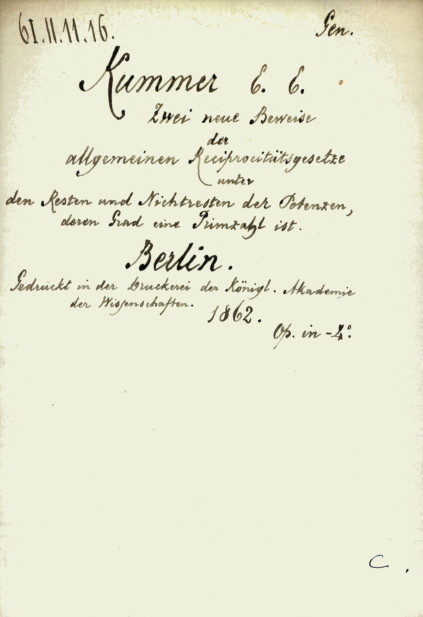 61.II.11.16.
Gen.
Kummer E. E.
Zwei neue Beweise
der
allgemeinen Reciprocitätsgesetze
unter
den Resten und Nichtresten der Potenzen,
deren Grad eine Primzahl ist.
Berlin.
Gedruckt in der Druckerei der Königl. Akademie
der Wissenschaften.
1862.
Op. in - 4°.
C.